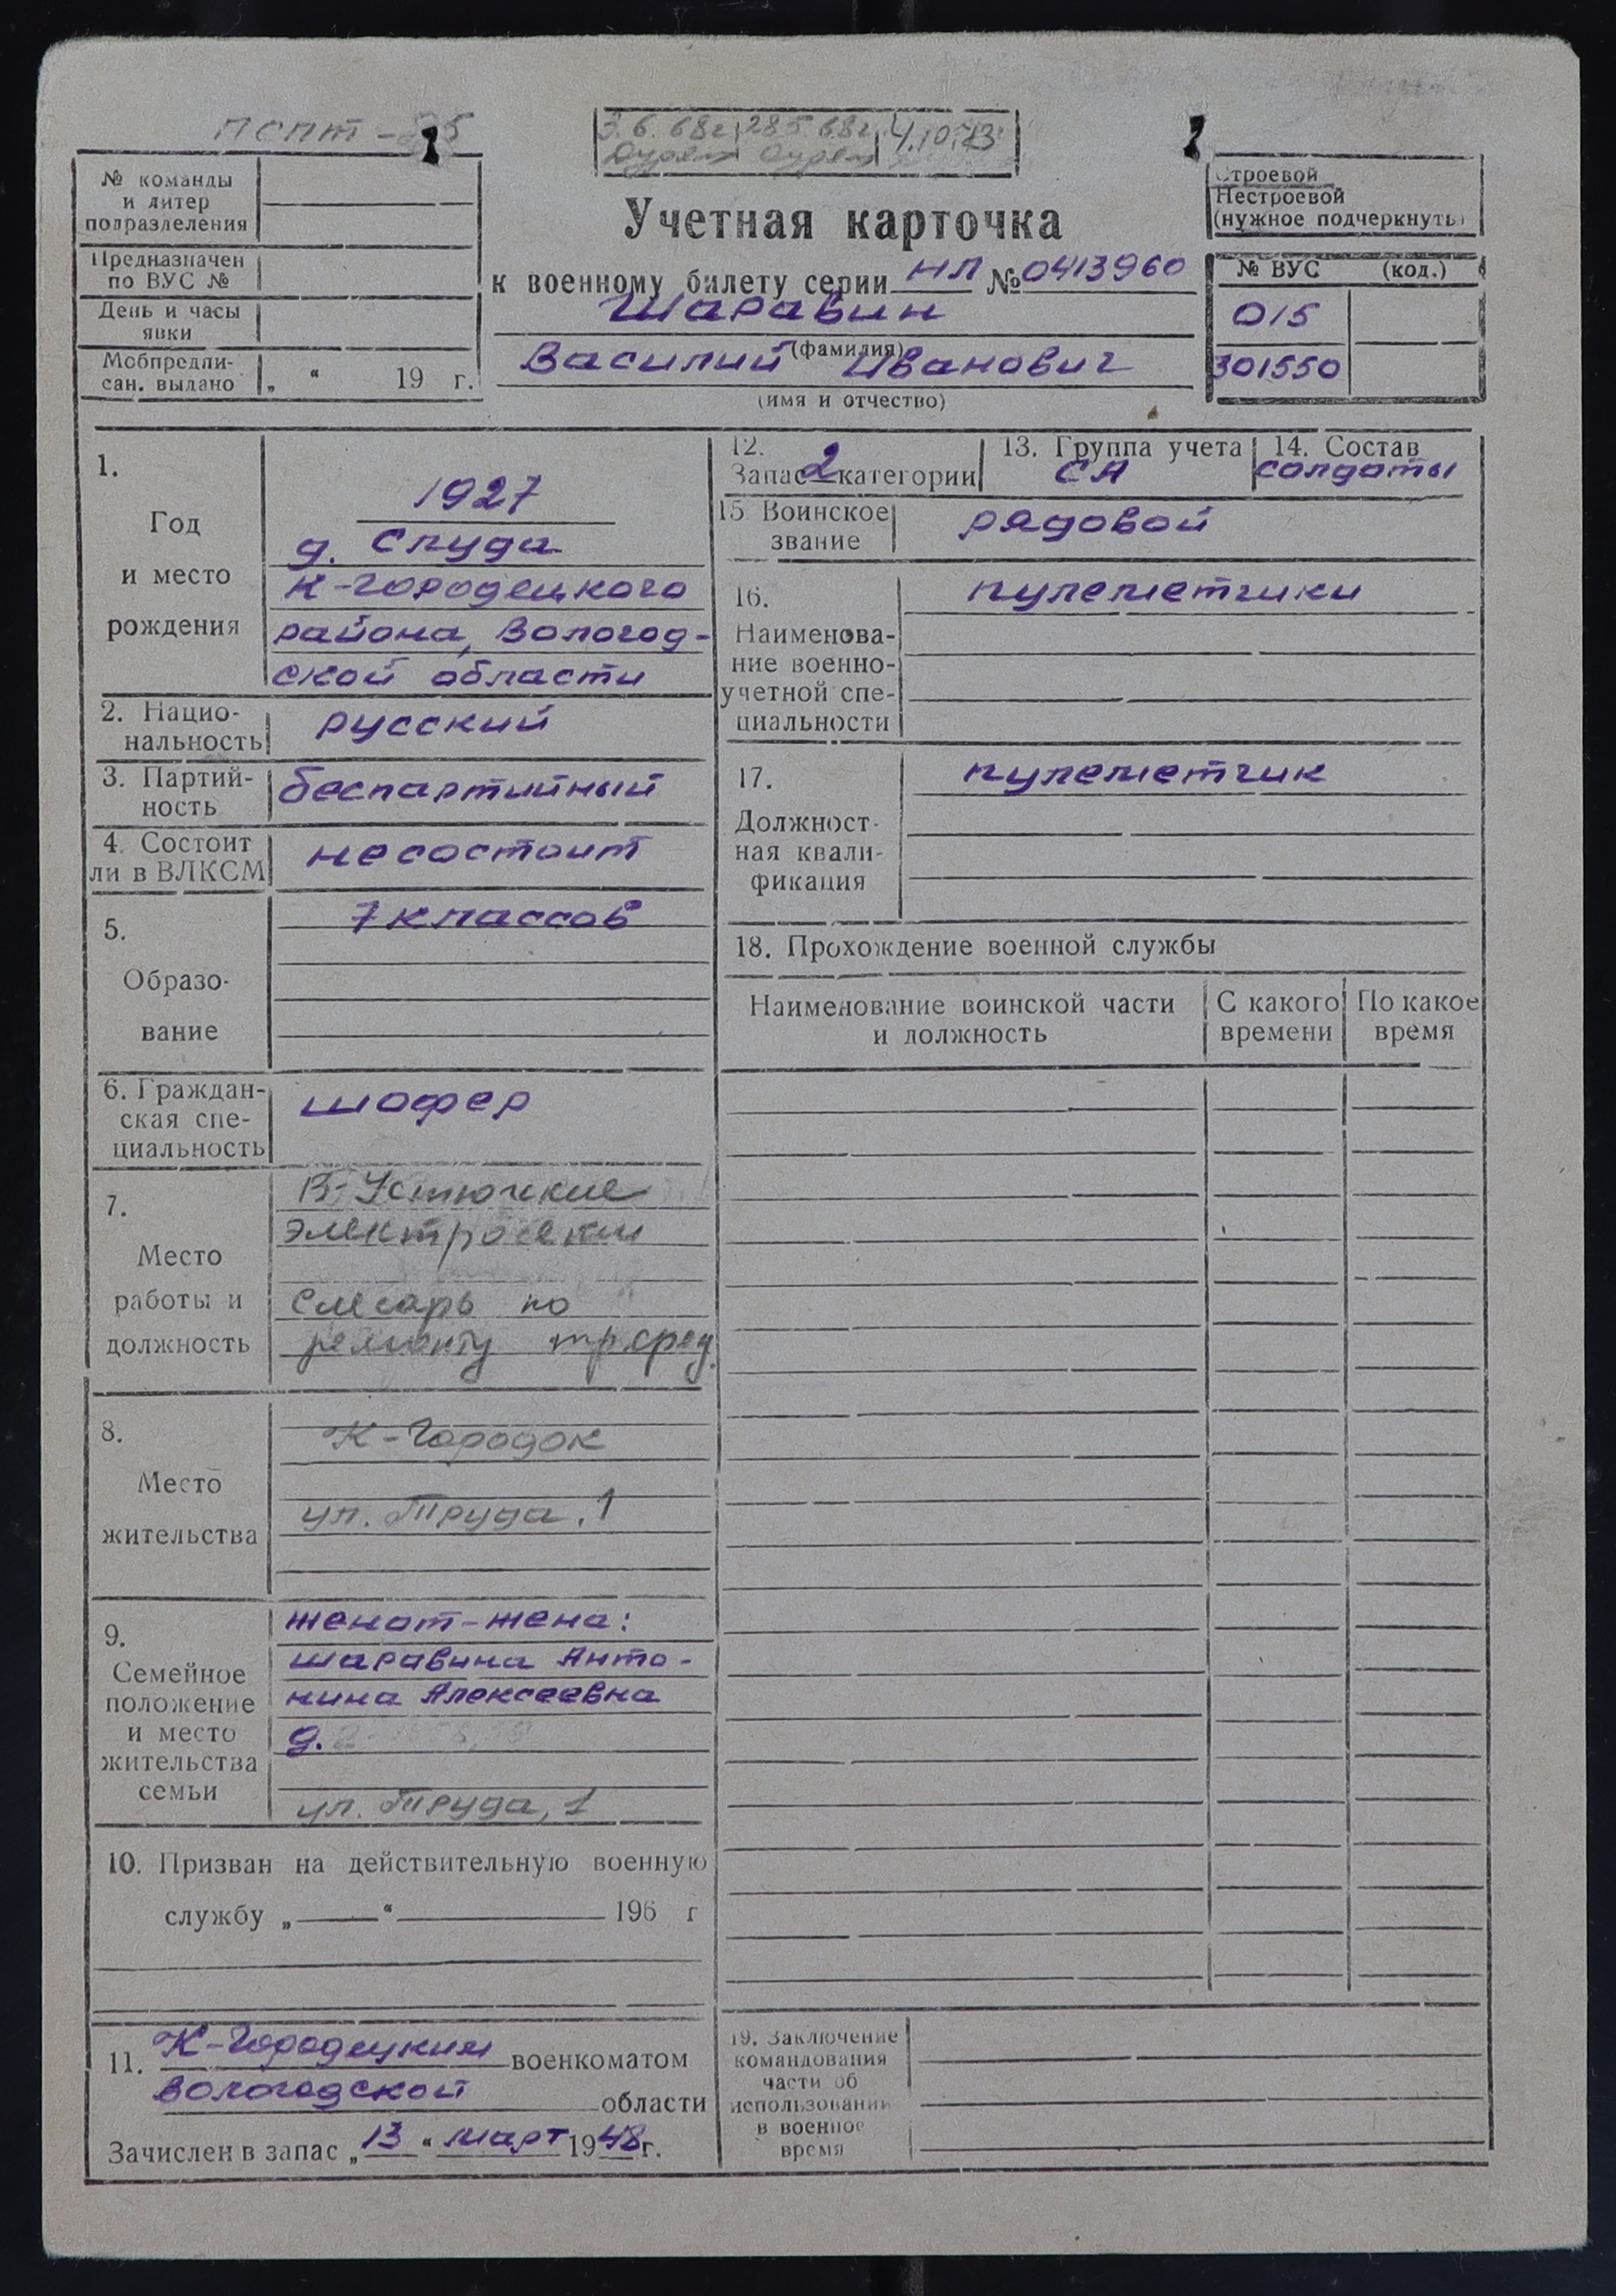 ПСПТ -
3.6.68г. 28.5.68г. 4.10.73
№ команды
и литер
подразделения
Предназначен
по ВУС №
День и часы
явки
Мобпредпи-
сан. выдано „ “ 19 г.
Учетная карточка
к военному билету серии НЛ № 0413960
Шаравин
(фамилия)
Василий Иванович
(имя и отчество)
Строевой
Нестроевой
(нужное подчеркнуть)
№ ВУС (код.)
015
301550
1.
Год
и место
рождения
1927
д. Слуда
К-Городецкого
района, Вологод-
ской области
2. Нацио-
нальность
русский
3. Партий-
ность
беспартийный
4. Состоит
ли в ВЛКСМ
несостоит
5.
Образо-
вание
7 классов
6. Граждан-
ская спе-
циальность
шофер
7.
Место
работы и
должность
В-Устюгские
электросети
слесарь по
ремонту тр.сред.
8.
Место
жительства
К-Городок
ул. Труда, 1
9.
Семейное
положение
и место
жительства
семьи
женат-жена:
Шаравина Анто-
нина Алексеевна
д.
ул. Труда, 1
10. Призван на действительную военную
службу „ “ 196 г
11. К-Городецким военкоматом
Вологодской области
Зачислен в запас „13“ март 1948 г.
12.
Запас 2 категории
13. Группа учета
СА
14. Состав
солдаты
15 Воинское
звание
рядовой
16.
Наименова-
ние военно-
учетной спе-
циальности
пулеметчики
17.
Должност-
ная квали-
фикация
пулеметчик
18. Прохождение военной службы
Наименование воинской части
и должность
С какого
времени
По какое
время
19. Заключение
командования
части об
использовании
в военное
время